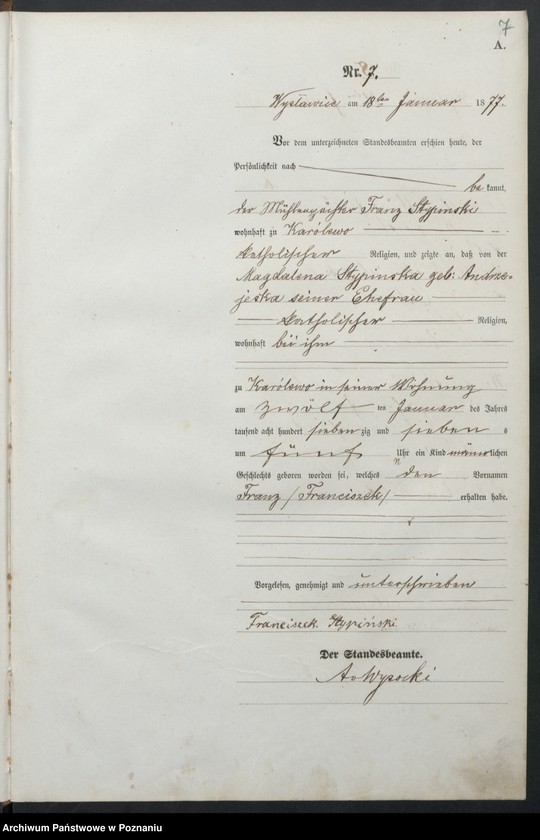 7
A.
Nr. 7.
Wysławice am 18ten Januar 1877.
Vor dem unterzeichneten Standesbeamten erschien heute, der
Persönlichkeit nach
be kannt,
der Mühlenpächter Franz Stypinski
wohnhaft zu Karólewo
katholischer Religion, und zeigte an, daß von der
Magdalena Stypinska geb. Andrze-
jeska seiner Ehefrau
katholischer Religion,
wohnhaft bei ihm
zu Karólewo in seiner Wohnung
am zwölf ten Januar des Jahres
tausend acht hundert sieben zig und sieben s
um fünf Uhr ein Kind männlichen
Geschlechts geboren worden sei, welches den Vornamen
Franz /Franciszek/ erhalten habe.
Vorgelesen, genehmigt und unterschrieben
Franciszek Stypiński
Der Standesbeamte.
Wysocki
Archiwum Państwowe w Poznaniu